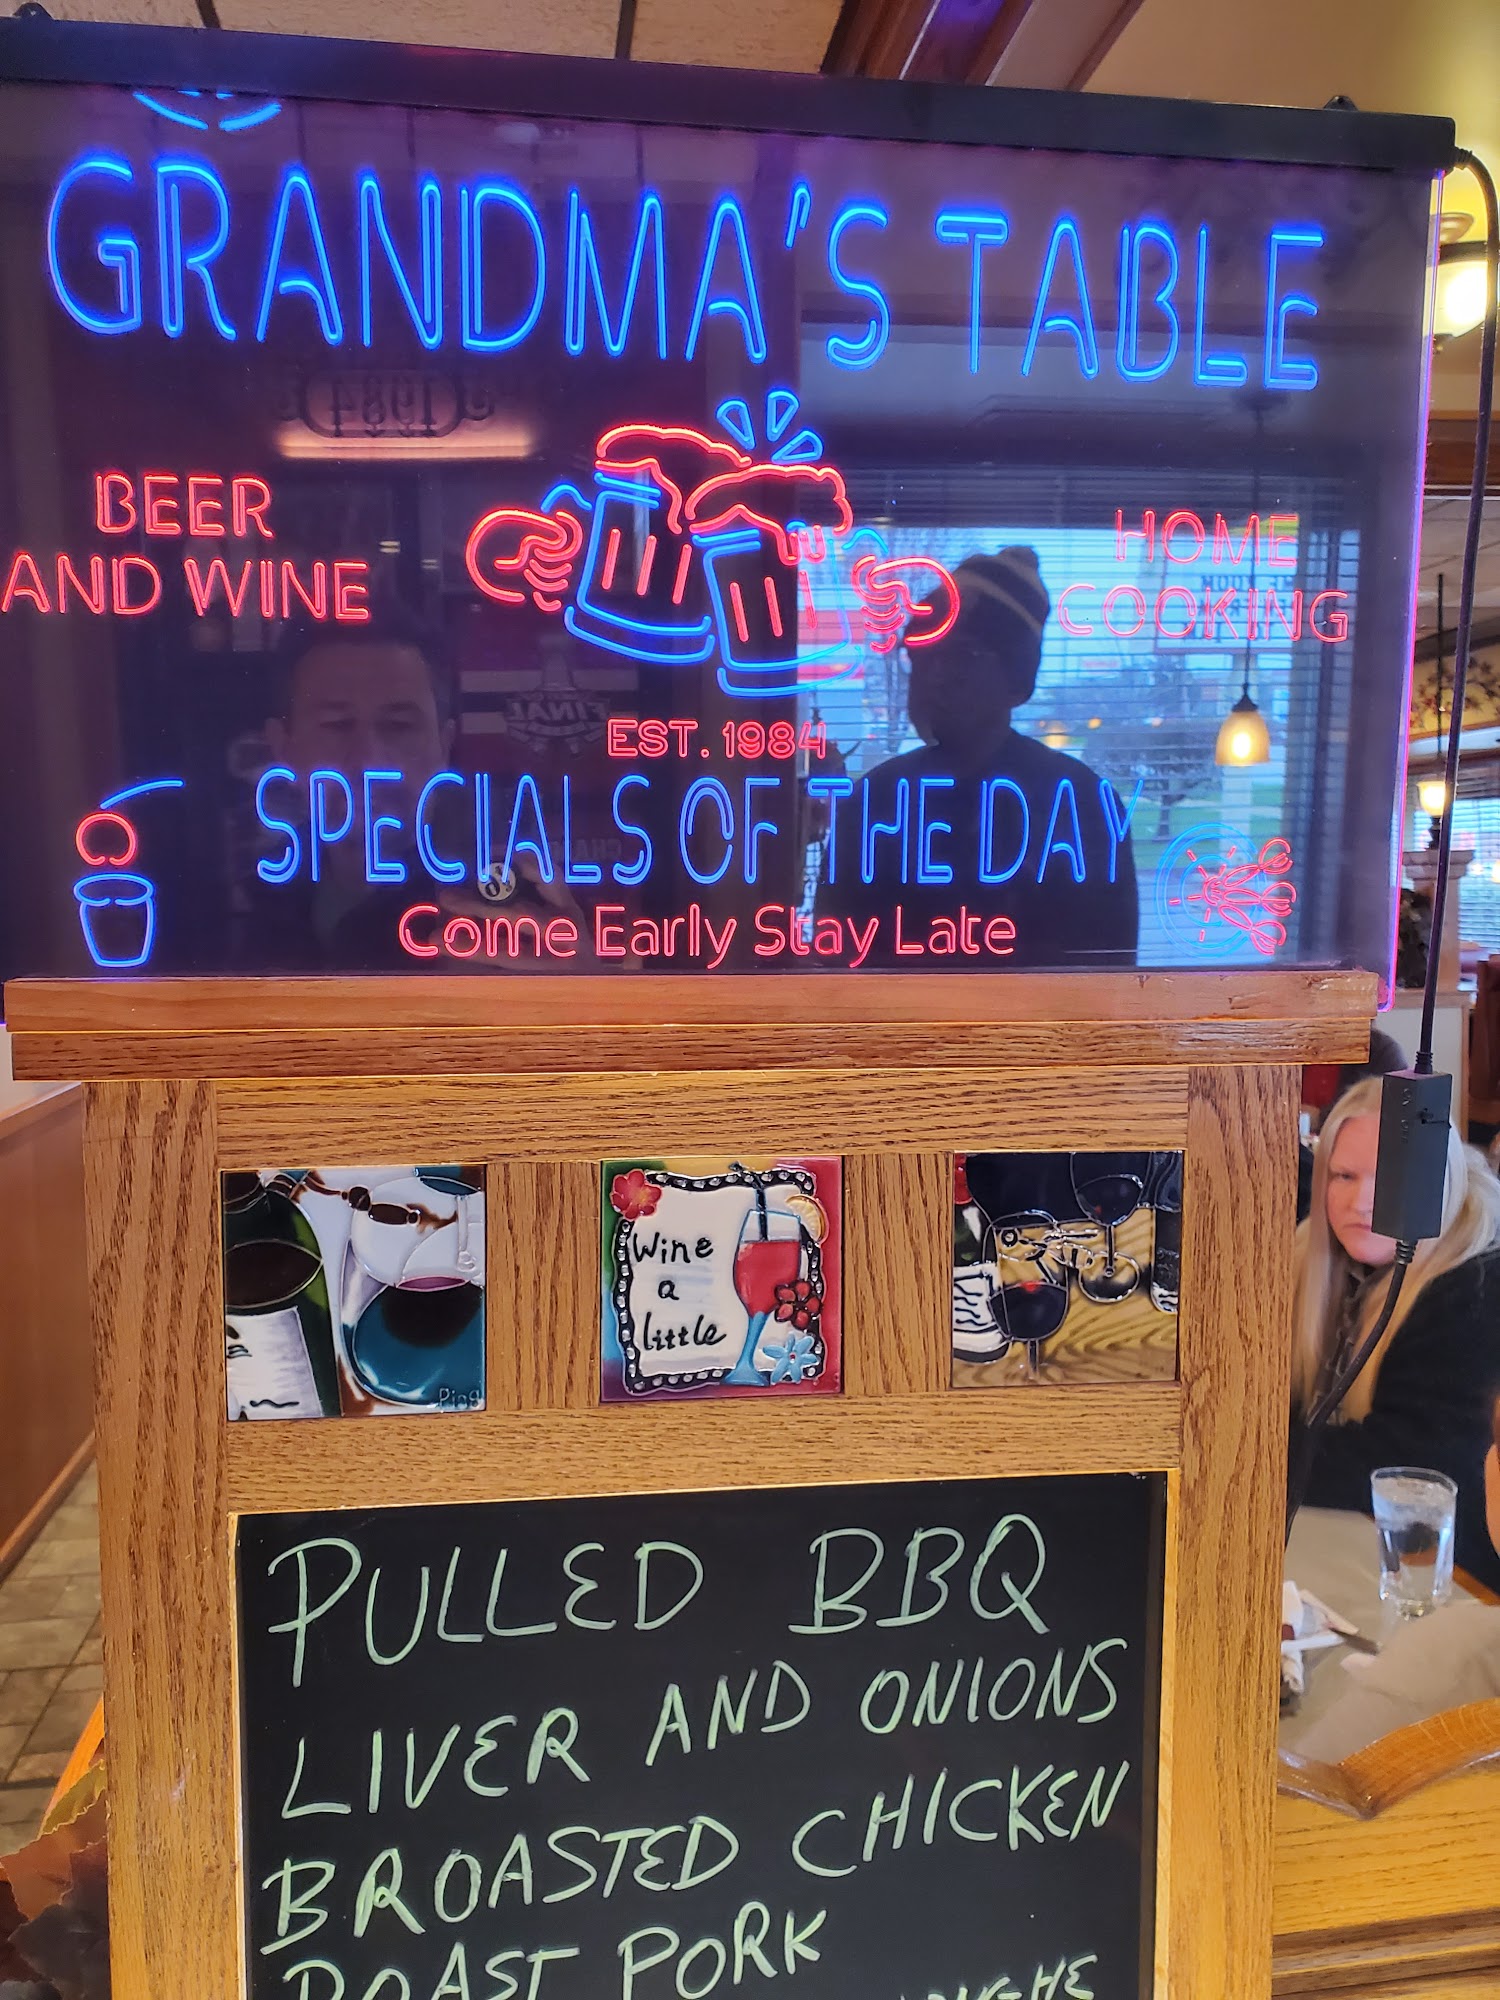 GRANDMA'S TABLE
BEER
AND WINE
HOME
COOKING
EST. 1984
SPECIALS OF THE DAY
Come Early Stay Late
Wine
a
little
Ping
PULLED BBQ
LIVER AND ONIONS
BROASTED CHICKEN
ROAST PORK